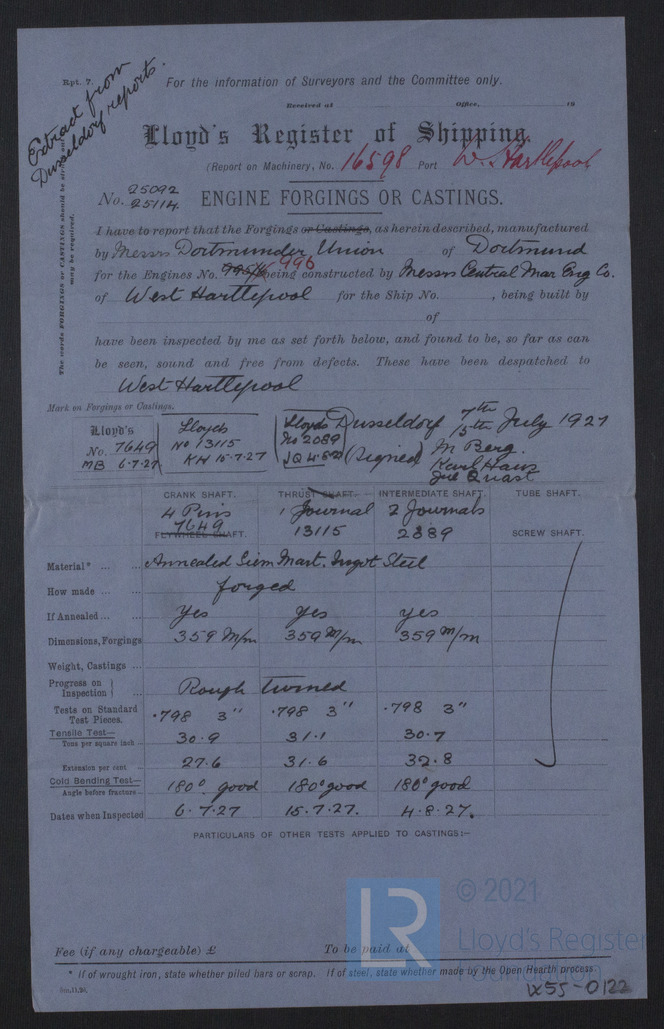 Rpt. 7.
Extract from
Dusseldorf reports.
For the information of Surveyors and the Committee only.
Received at Office, 19
Lloyd's Register of Shipping.
(Report on Machinery, No. 16598 Port W. Hartlepool
No. 25092
25114.
ENGINE FORGINGS OR CASTINGS.
The words FORGINGS or CASTINGS should be struck out
may be required.
I have to report that the Forgings or Castings, as herein described, manufactured
by Messrs Dortmunder Union of Dortmund
for the Engines No. 996 being constructed by Messrs Central Mar Eng Co.
of West Hartlepool for the Ship No. , being built by
of
have been inspected by me as set forth below, and found to be, so far as can
be seen, sound and free from defects. These have been despatched to
West Hartlepool
Mark on Forgings or Castings.
Lloyd's
No. 7649
MB 6.7.27
Lloyds
No 13115
KH 15.7.27
Lloyds
No 2089
JQ 4.8.27
Dusseldorf 7th
15th July 1927
(Signed) M Berg.
Karl Haus
Quast
CRANK SHAFT. THRUST SHAFT. INTERMEDIATE SHAFT. TUBE SHAFT.
4 Pins 1 Journal 2 Journals
7649 13115 2889
FLYWHEEL SHAFT. SCREW SHAFT.
Material* ... Annealed Siem Mart. Ingot Steel
How made ... forged
If Annealed ... Yes Yes yes
Dimensions, Forgings 359 m/m 359 m/m 359 m/m
Weight, Castings ...
Progress on
Inspection } ... Rough turned
Tests on Standard
Test Pieces. .798 3" .798 3" .798 3"
Tensile Test—
Tons per square inch 30.9 31.1 30.7
Extension per cent 27.6 31.6 32.8
Cold Bending Test—
Angle before fracture 180° good 180° good 180° good
Dates when Inspected 6.7.27 15.7.27. 4.8.27.
PARTICULARS OF OTHER TESTS APPLIED TO CASTINGS:—
© 2021
LR
Lloyd's Register
Foundation
Fee (if any chargeable) £ To be paid at
* If of wrought iron, state whether piled bars or scrap. If of steel, state whether made by the Open Hearth process
W55-0122